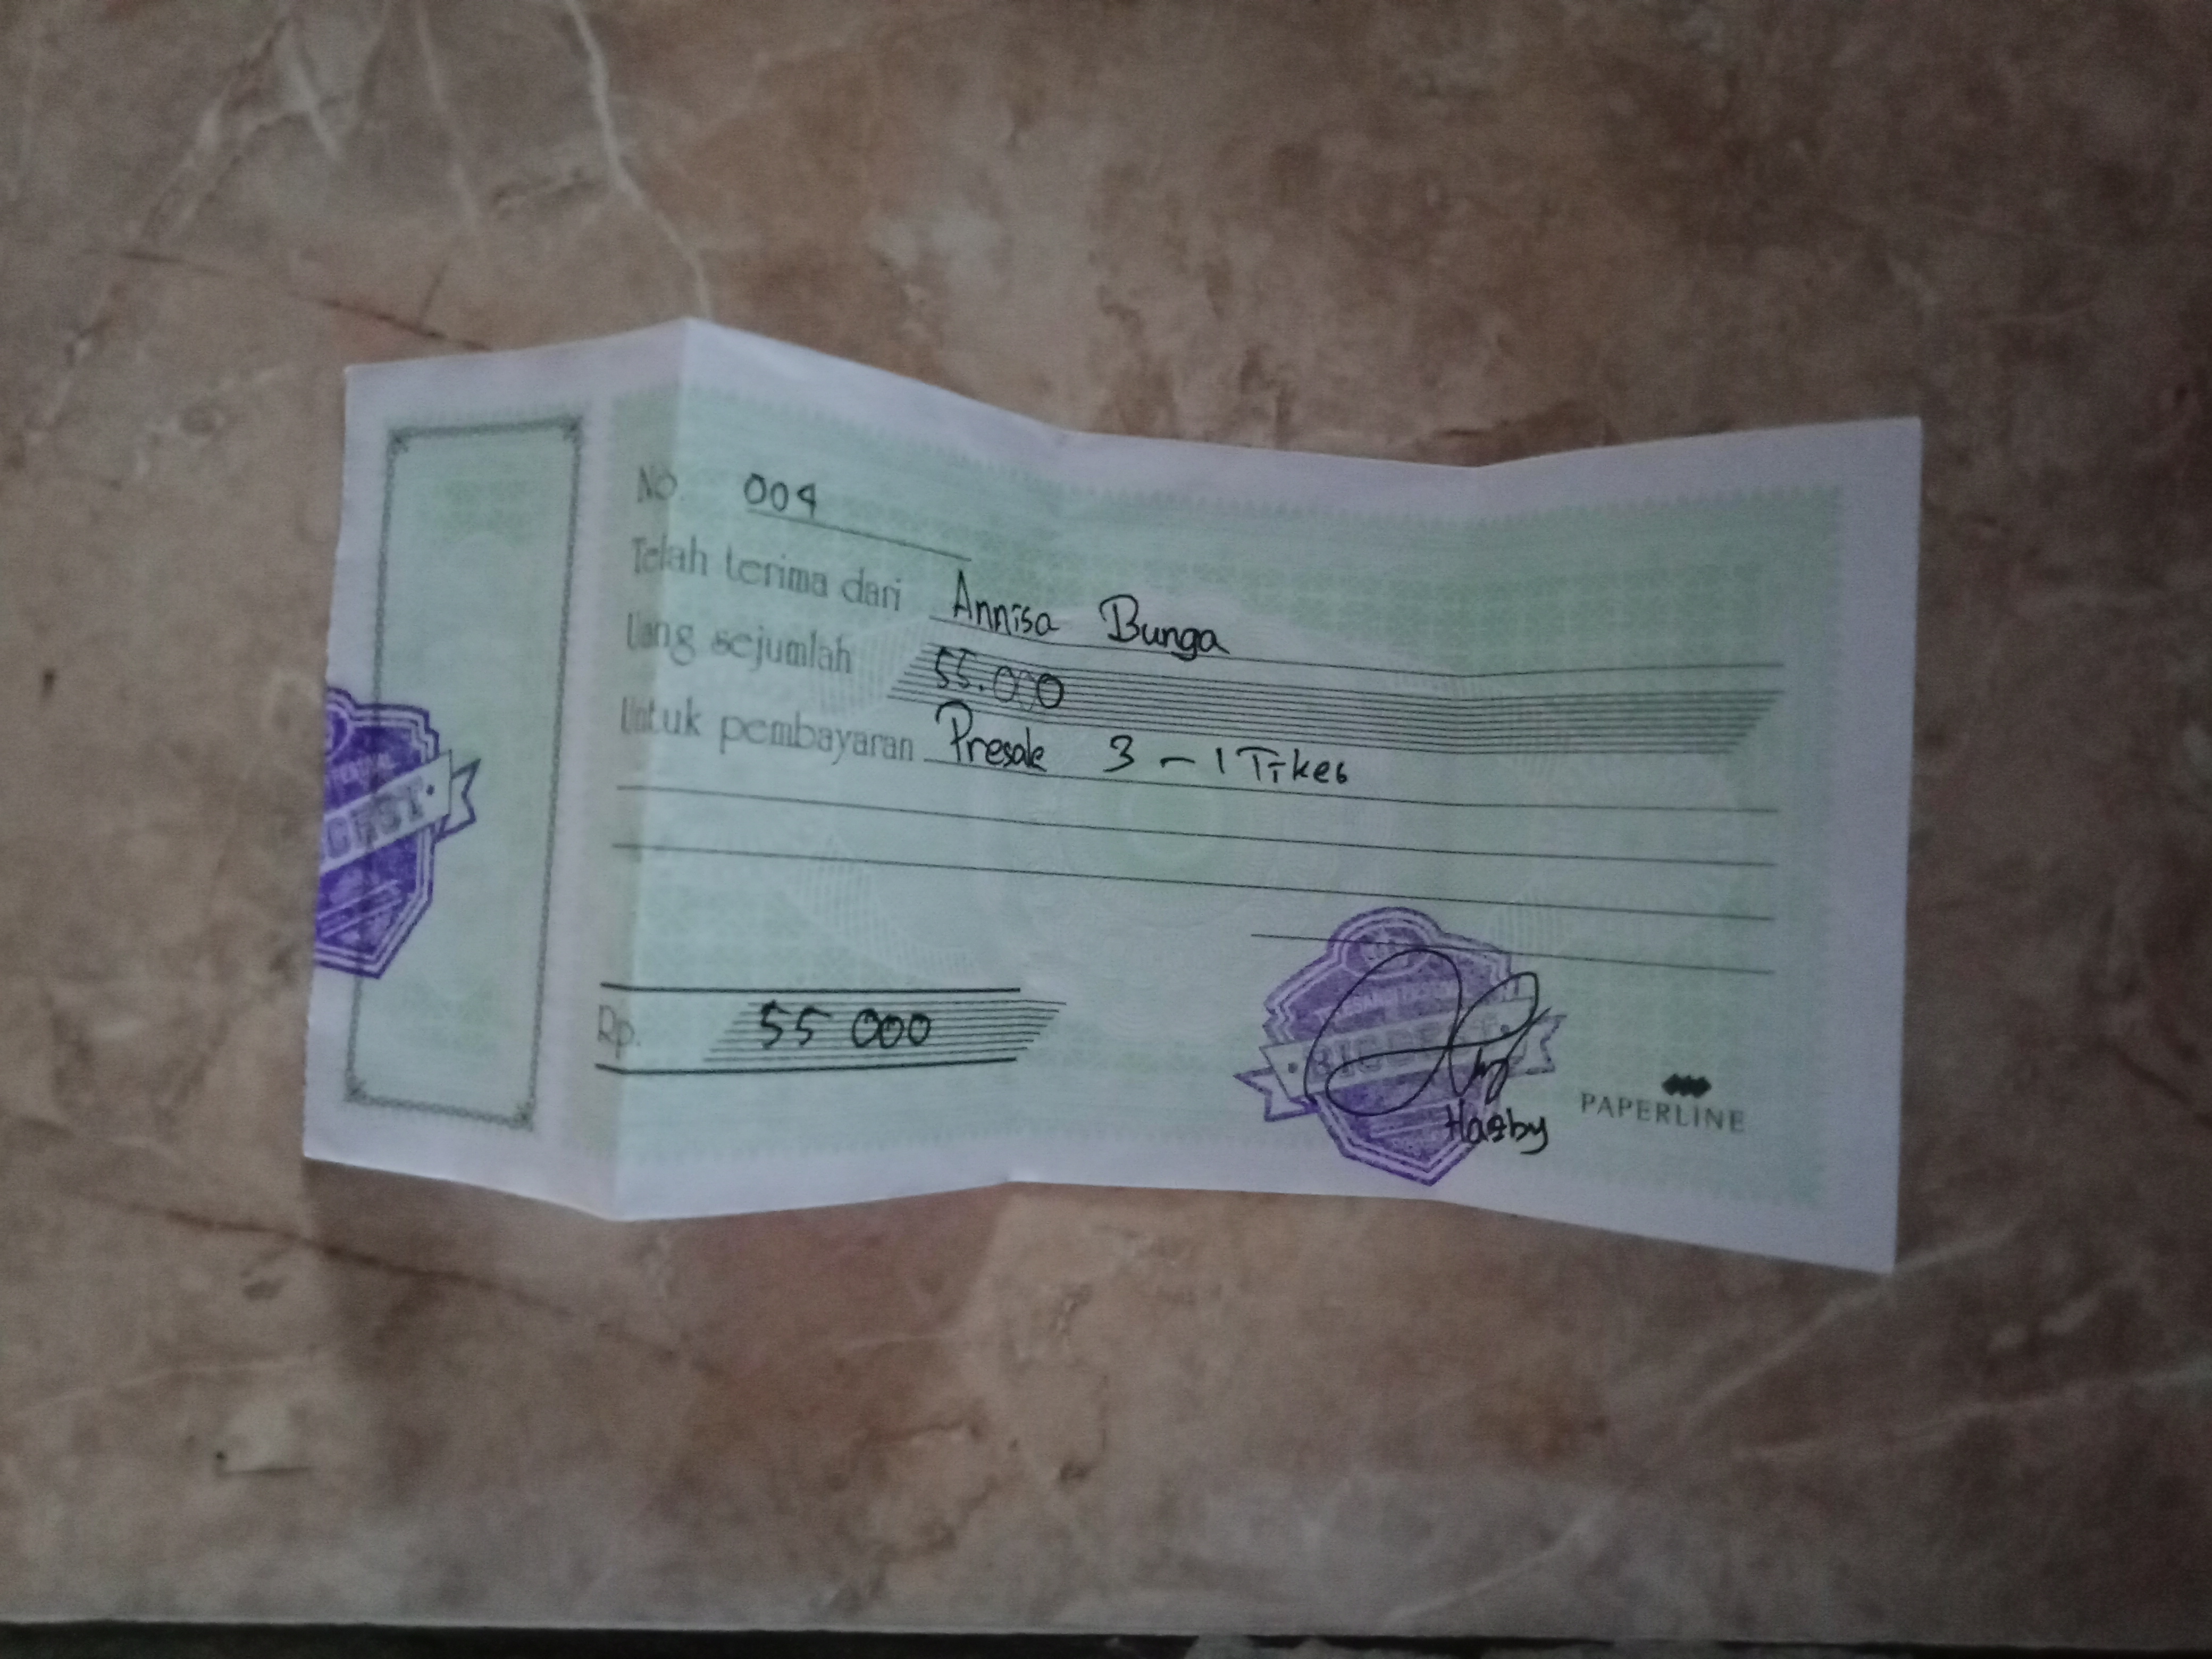 No. 004
Telah terima dari Annisa Bunga
Uang sejumlah 55.000
Untuk pembayaran Presale 3 - 1 Tiket
Rp. 55 000
BIGGEST
Hasby
PAPERLINE